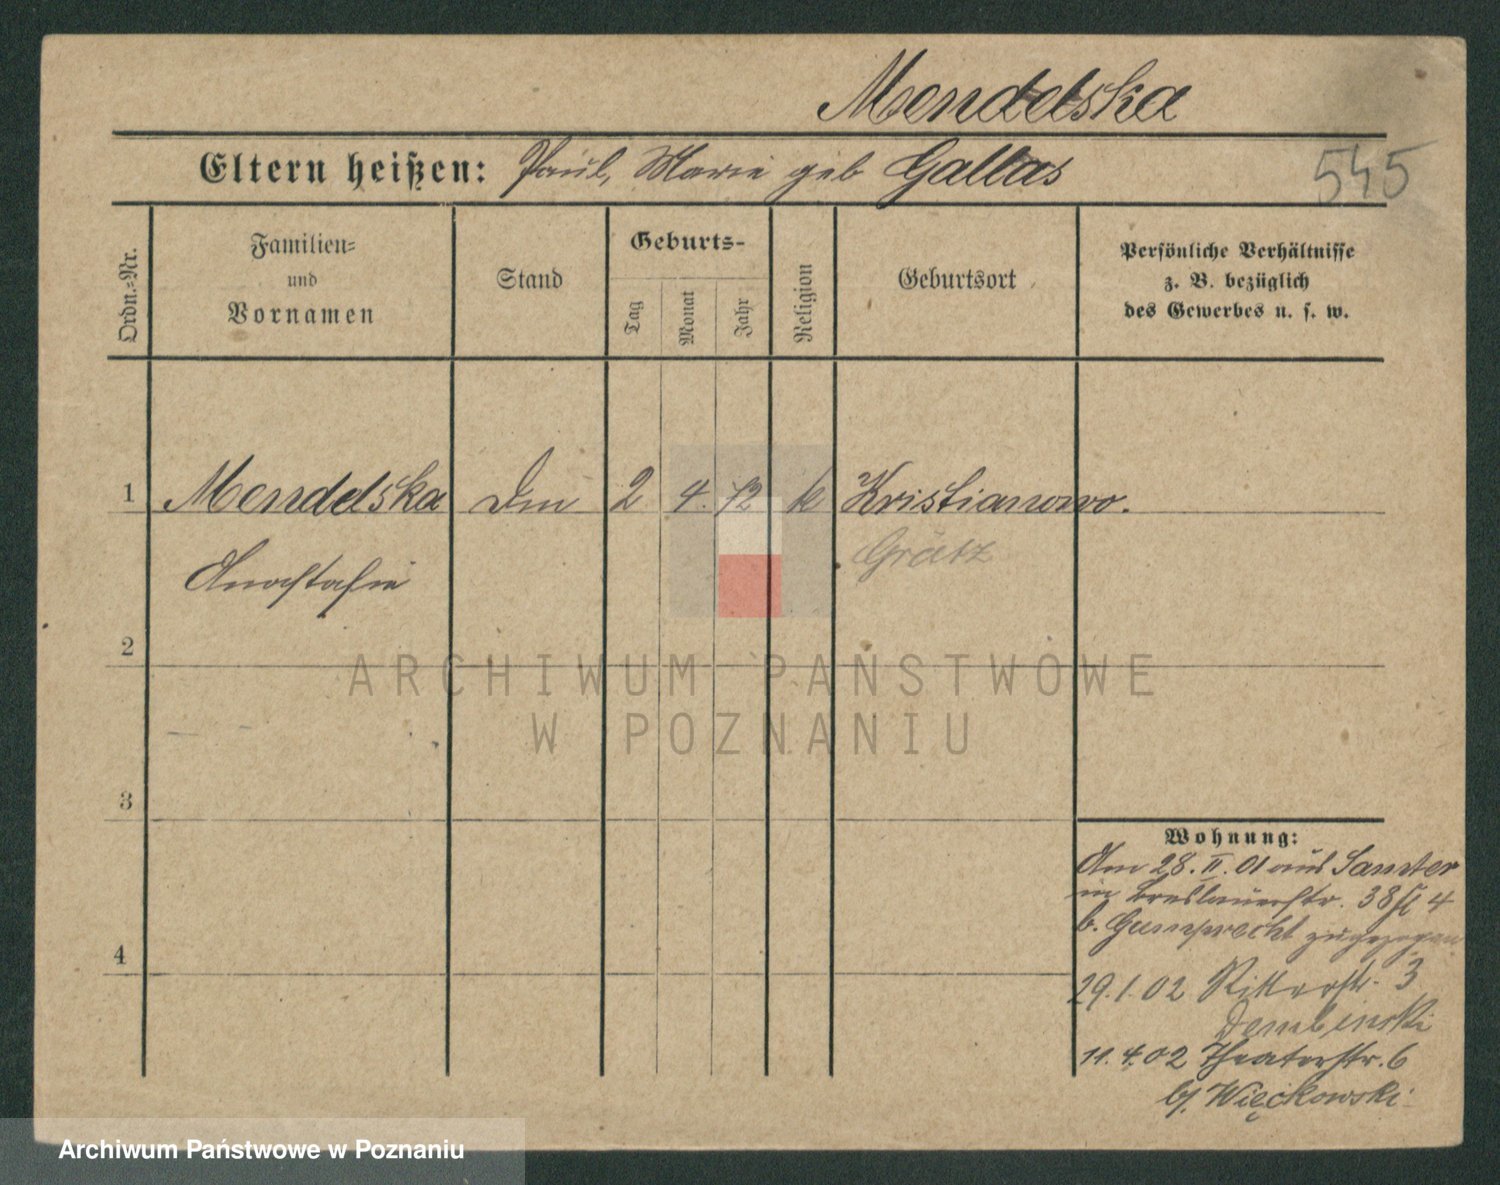 Mendelska
Eltern heißen: Paul, Marie geb Gallas
545
Ordn.-Nr.
Familien-
und
Vornamen
Stand
Geburts-
Tag
Monat
Jahr
Religion
Geburtsort
Persönliche Verhältnisse
z. B. bezüglich
des Gewerbes u. s. w.
1 Mendelska 2 4. 72 k Kristianowo.
Anastasie Grätz
2
ARCHIWUM PAŃSTWOWE
W POZNANIU
3
Wohnung:
Am 28. II. 01 aus Samter
in Breslauerstr. 38 4
b. Gumprecht zugezogen
4
29.1.02 Ritterstr. 3
Dembinski
11.4.02 Theaterstr. 6
bj. Więckowski
Archiwum Państwowe w Poznaniu